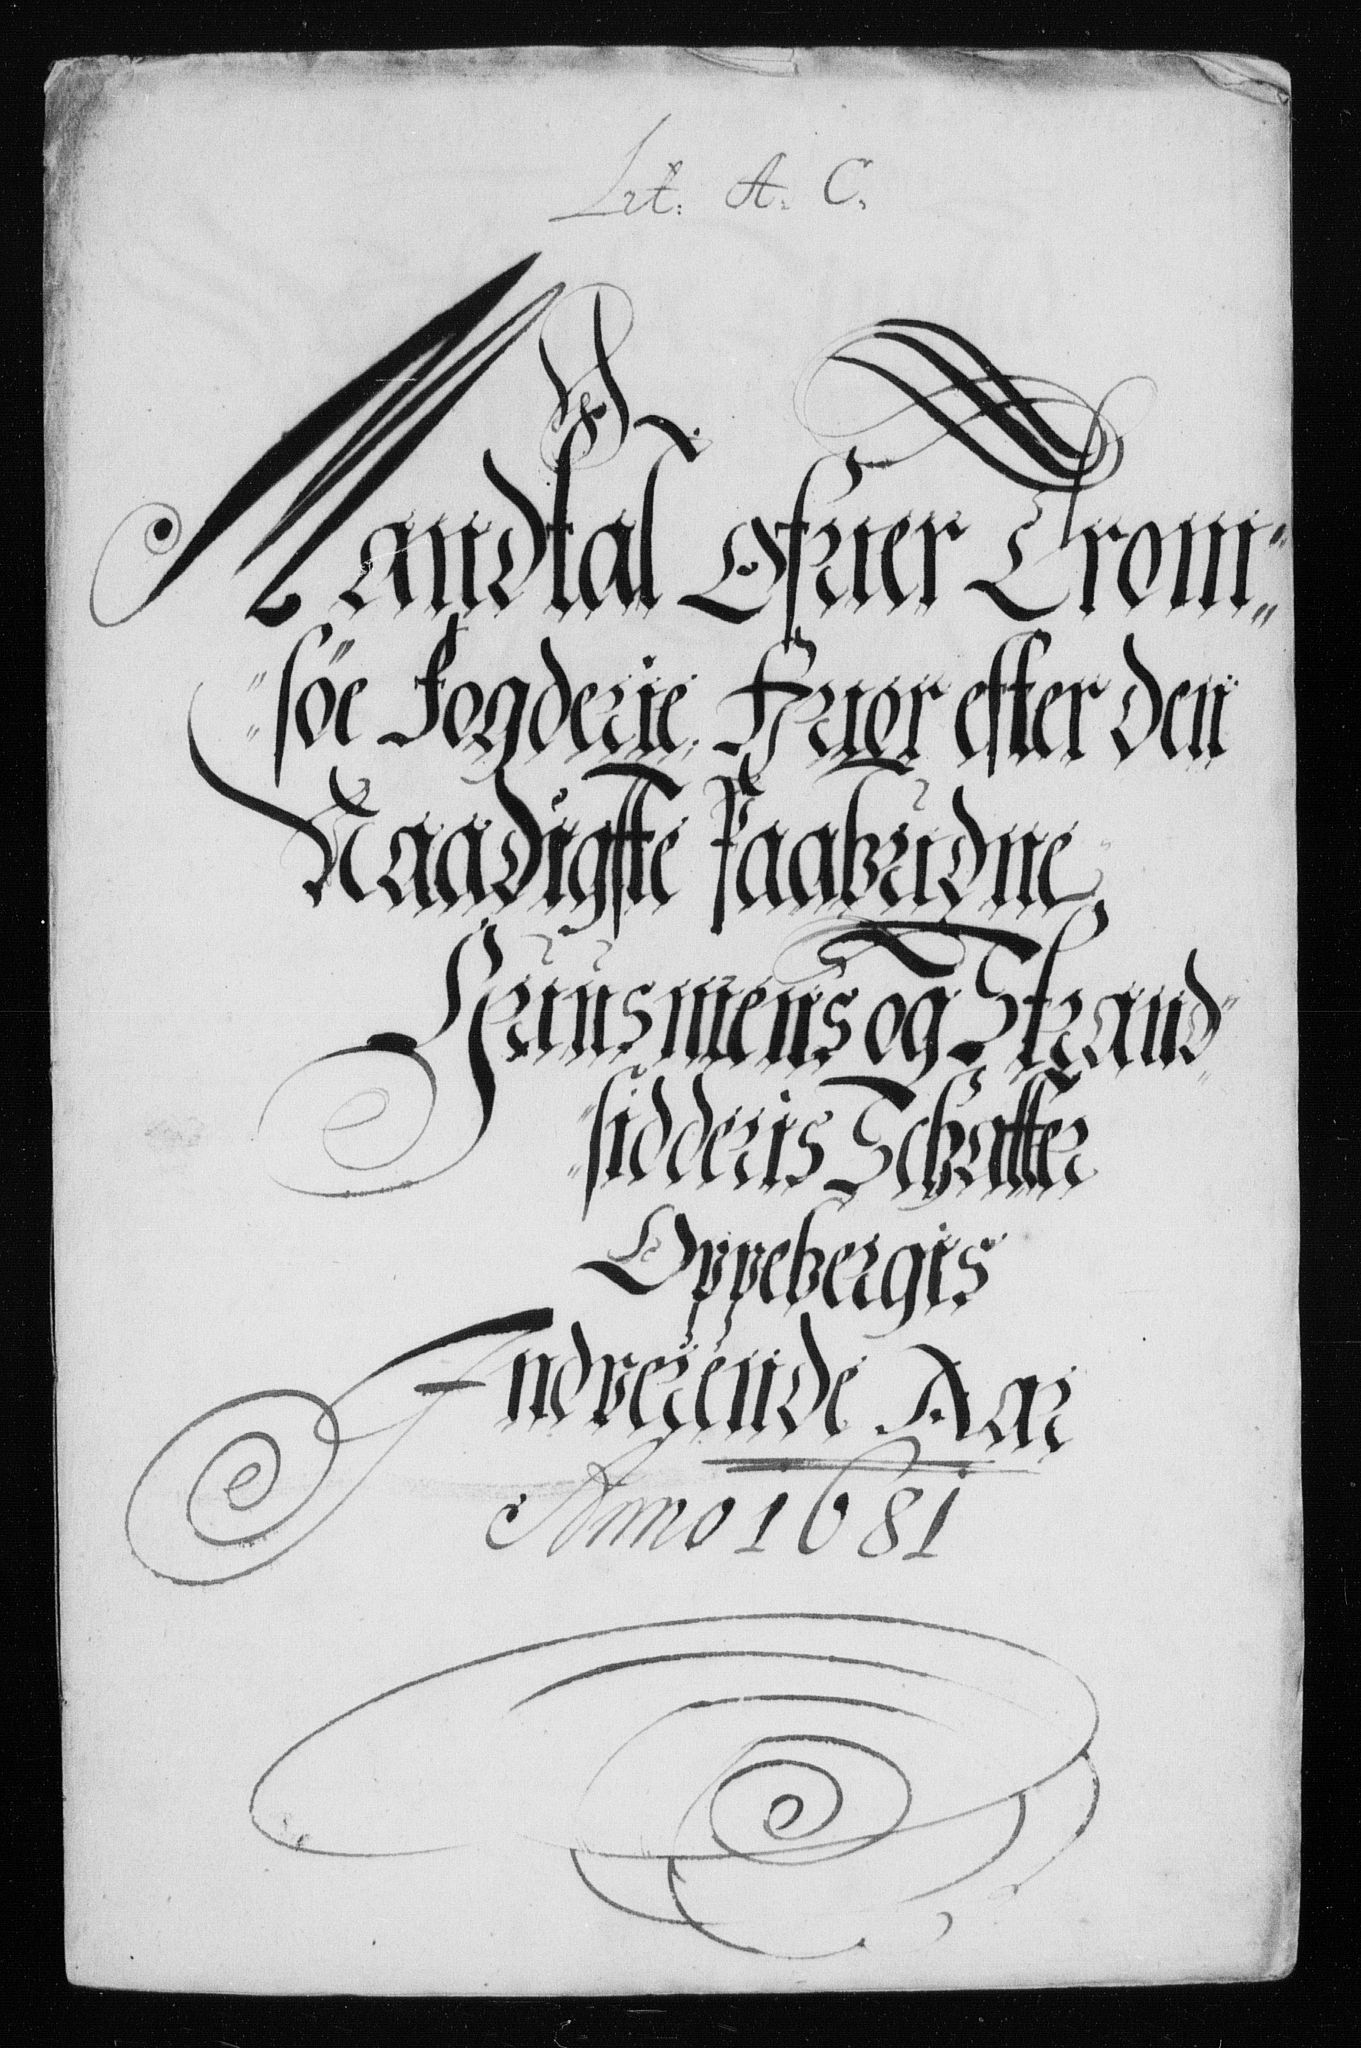 Lit. A. C.
Mandtal Ofuer Trom=
=söe Fogderie, Huor efter den
Naadigste Paabudne
Huusmens og Strand=
=sidderis Schatter
Oppebergis
Indverende Aar
Anno 1681